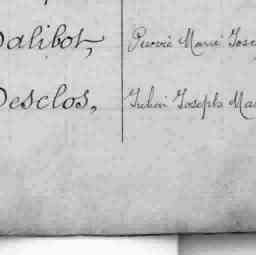 Dalibot, Pierre Marie Jose
Desclos, Julien Joseph Ma